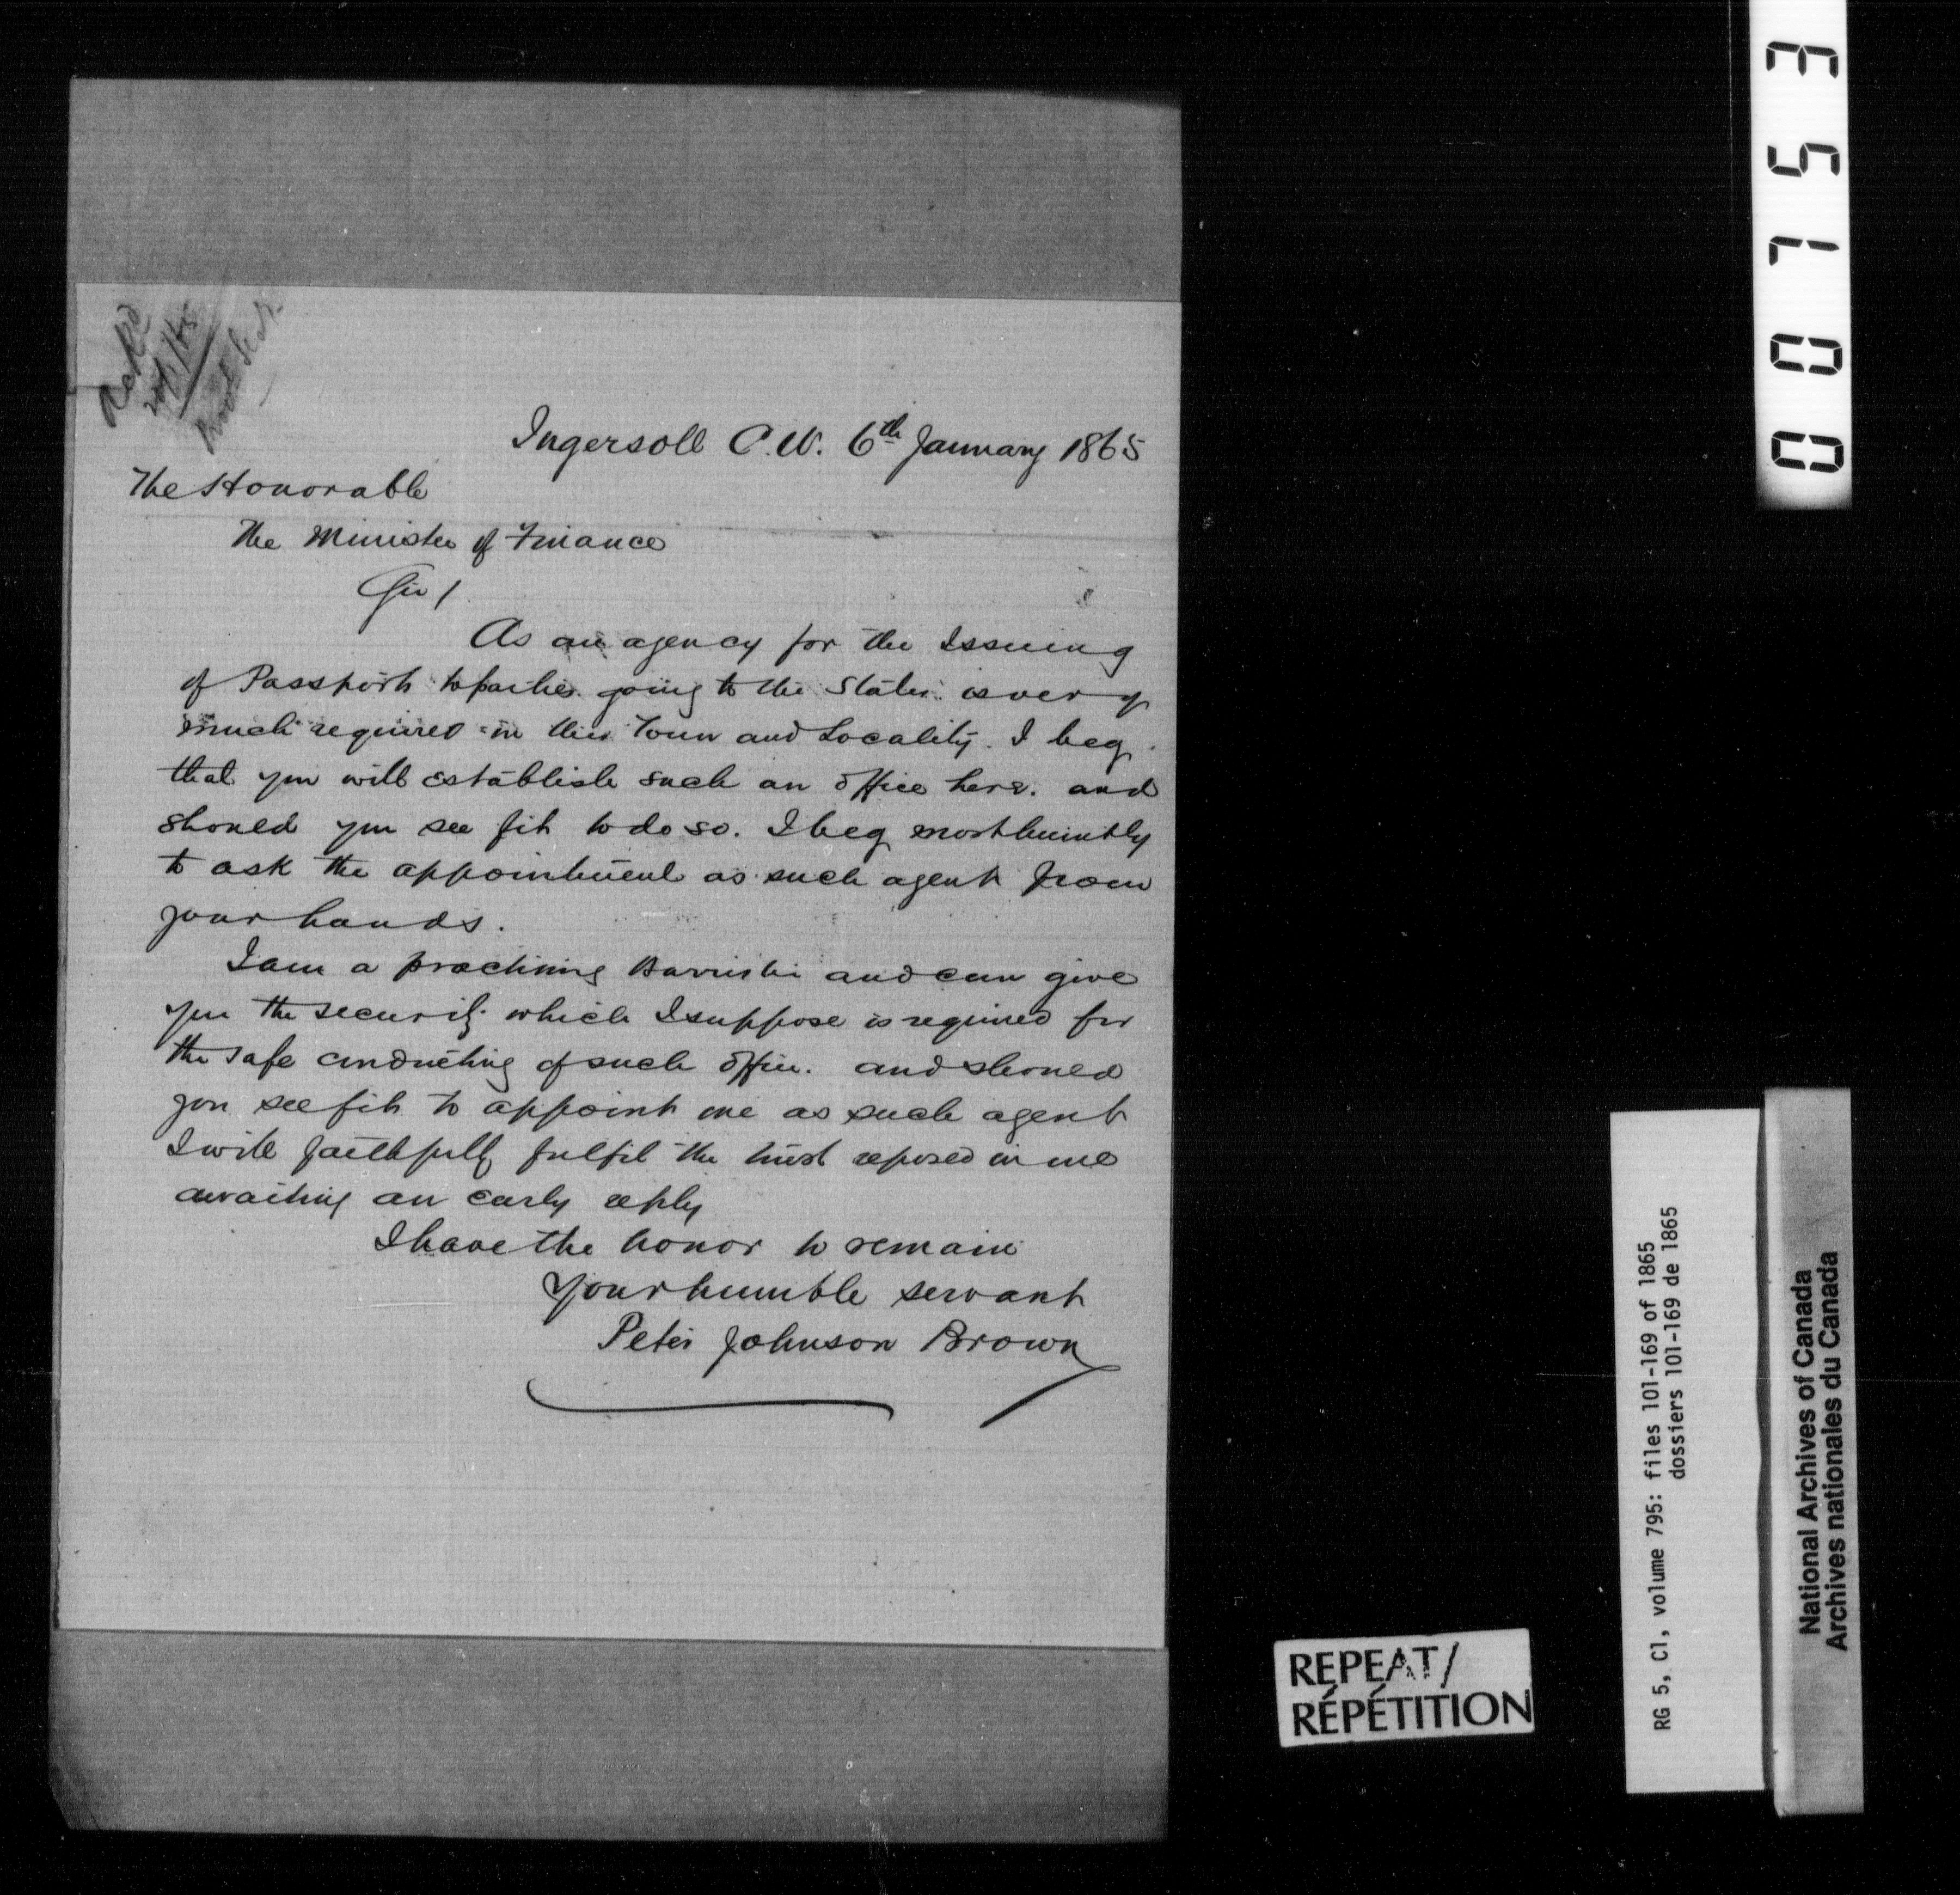 Ack'd
Ingersoll C.W. 6th January 1865
The Honorable
The Minister of Finance
Sir /
As an agency for the Issuing
of Passports to parties going to the States is very
much required in this Town and Locality. I beg
that you will establish such an office here. and
should you see fit to do so. I beg most humbly
to ask the appointment as such agent from
your hands.
I am a practising Barrister and can give
you the security which I suppose is required for
the safe conducting of such office. and should
you see fit to appoint me as such agent
I will faithfully fulfil the trust reposed in me
awaiting an early reply
I have the honor to remain
Your humble servant
Peter Johnson Brown
00153
RG 5, C1, volume 795: files 101-169 of 1865
dossiers 101-169 de 1865
National Archives of Canada
Archives nationales du Canada
REPEAT/
RÉPÉTITION